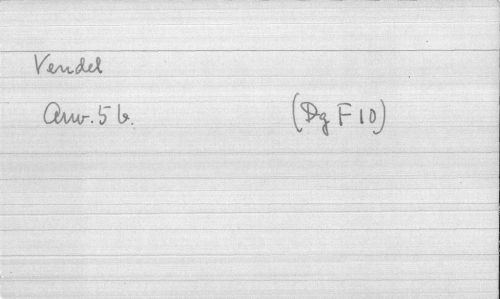 Vendel
Anv. 5 b. (Dg F 10)